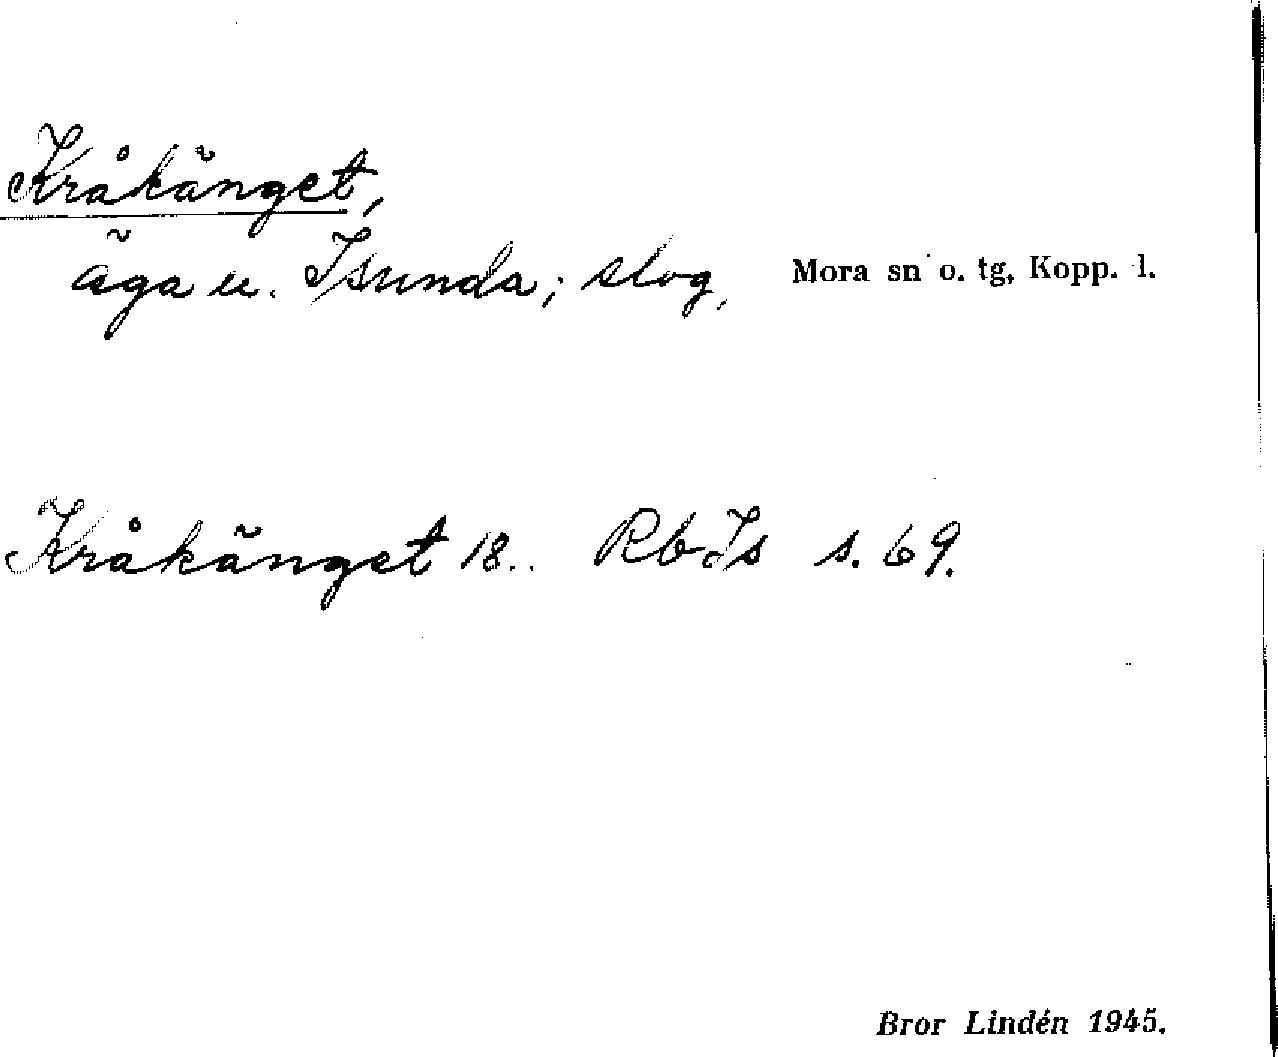 Kråkänget,
äga u. Isunda; slog, Mora sn o. tg, Kopp. l.
Kråkänget 18.. RbIs s. 69.
Bror Lindén 1945.